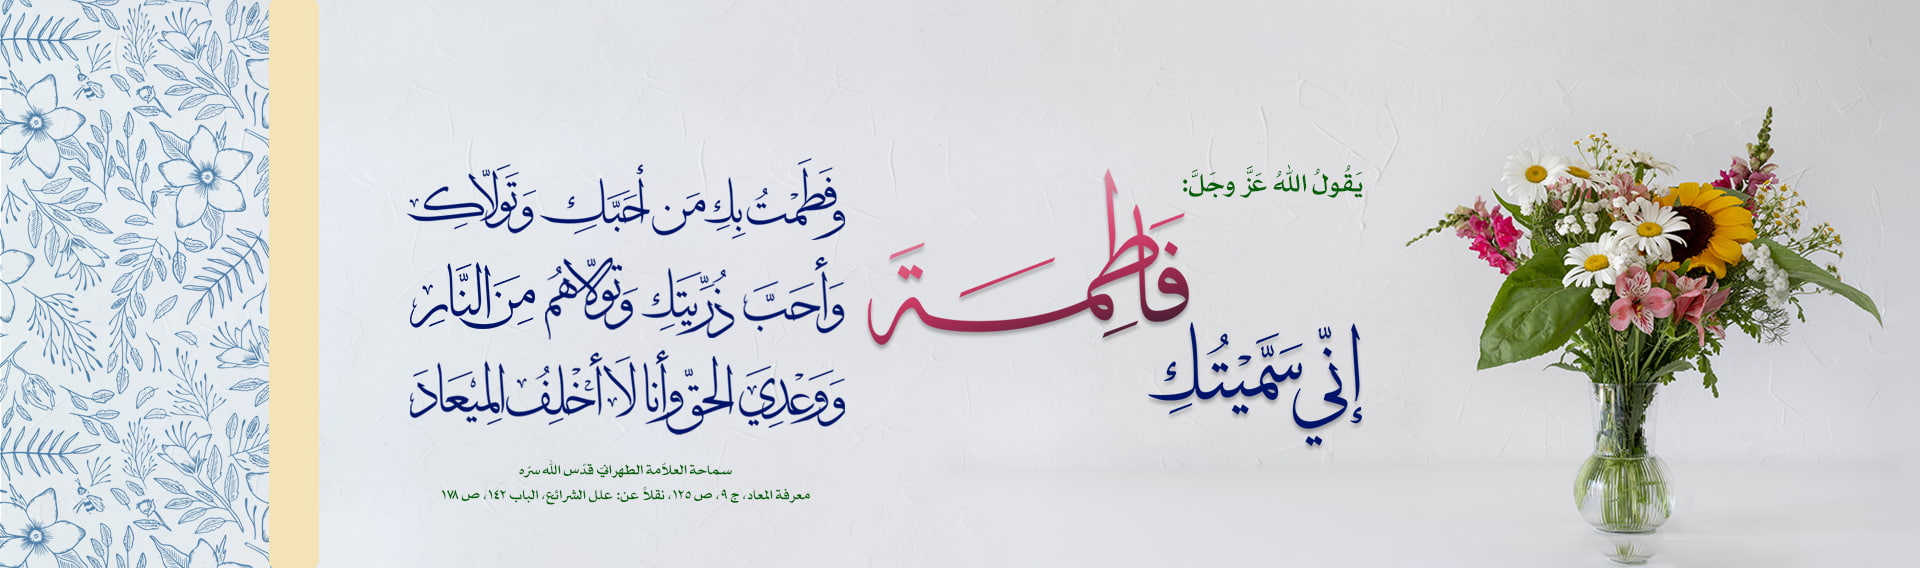 يَقُولُ اللهُ عَزَّ وجَلَّ:
إنّي سَمَّيْتُكِ
فَاطِمَة
وفَطَمْتُ بِكِ مَن أحَبَّكِ وَتَوَلّاكِ
وَأحَبَّ ذُرِّيَتَكِ وَتَولّاهُم مِنَ النَّارِ
وَوَعْدِيَ الحَقّ وأنا لَا أخْلِفُ المِيْعَادَ
سماحة العلاّمة الطهرانيّ قدّس الله سرّه
معرفة المعاد، ج ٩، ص ١٢٥، نقلاً عن: علل الشرائع، الباب ١٤٢، ص ١٧٨